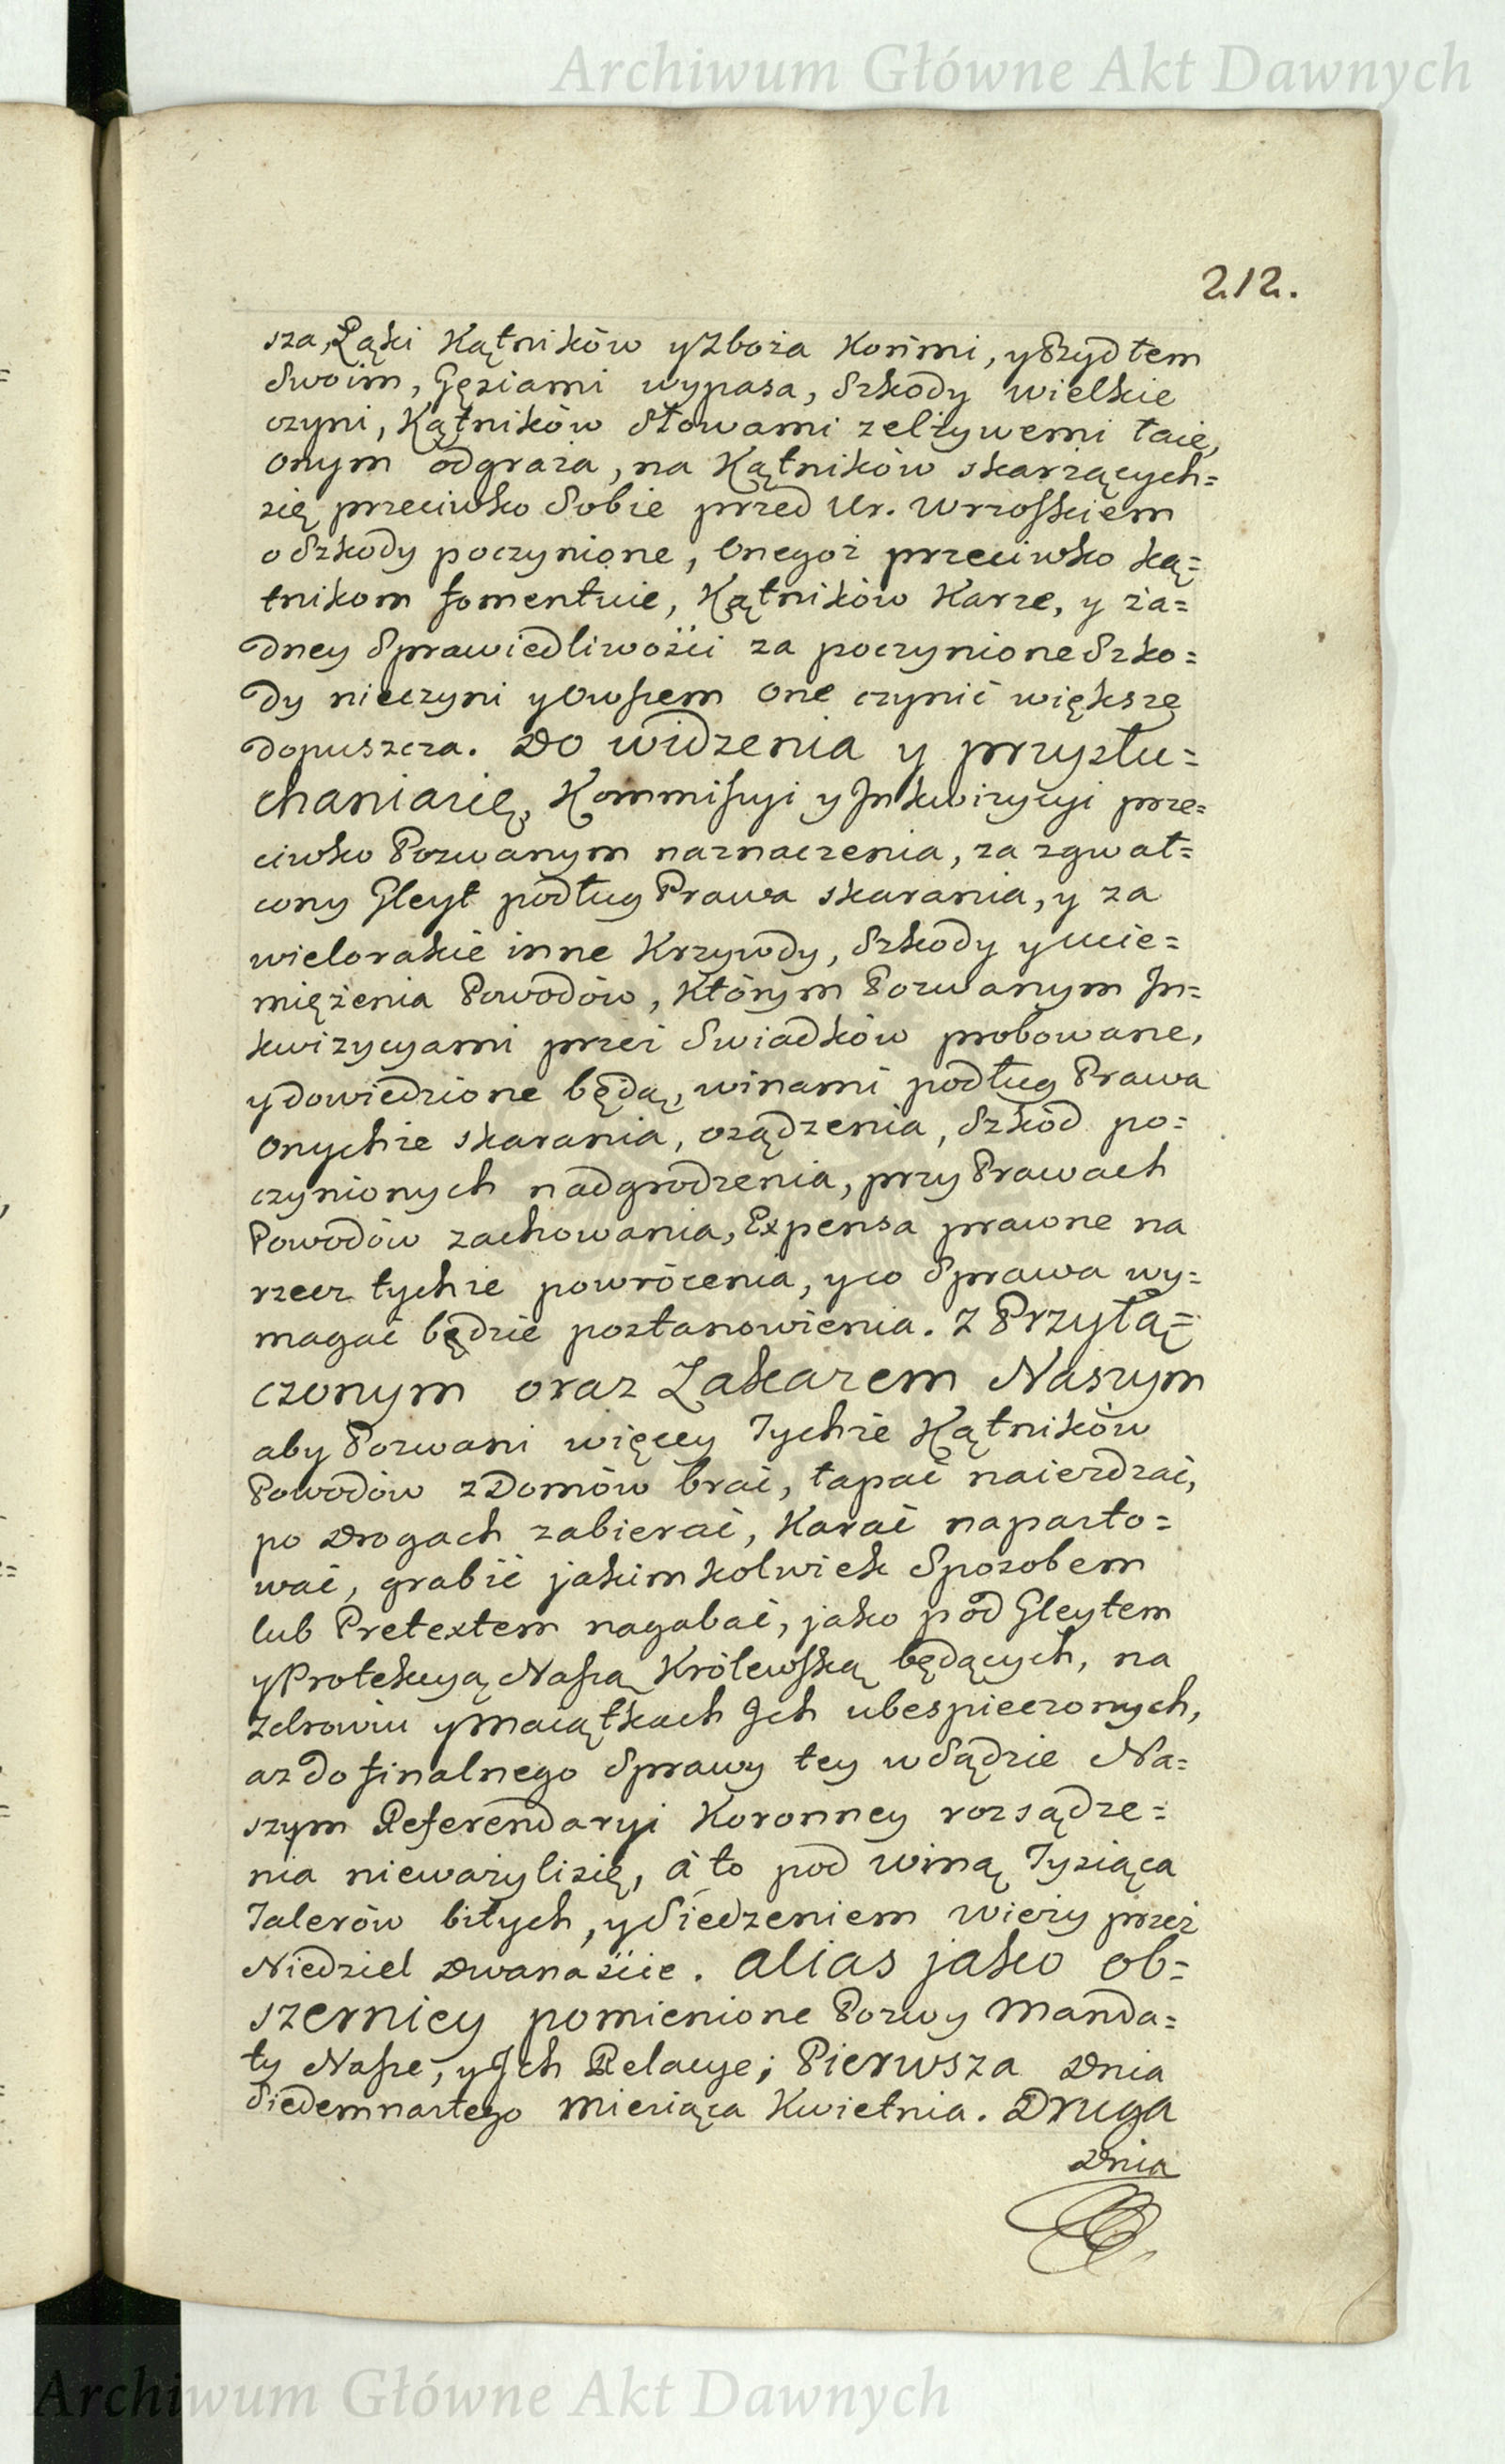 Archiwum Główne Akt Dawnych
212.
sza, Łąki Kątników y Zboża Końmi, y Bydłem
Swoim, Gęsiami wypasa, Szkody wielkie
czyni, Kątników Słowami zelżywemi łaie,
onym odgraża, na Kątników skarżących=
się przeciwko Sobie przed Ur. Wrzoskiem
o Szkody poczynione, Onegoż przeciwko ką=
tnikom fomentuie, Kątników Karze, y ża=
dney Sprawiedliwości za poczynione Szko=
dy nieczyni y Owszem one czynić większe
dopuszcza. Do widzenia y przysłu=
chaniasię, Kommisyi y Inkwizycyi prze=
ciwko Pozwanym naznaczenia, za zgwał=
cony Gleyt podług Prawa skarania, y za
wielorakie inne Krzywdy, Szkody y ucie=
miężenia Powodów, Którym Pozwanym In=
kwizycyami przez Swiadków probowane,
y dowiedzione będą, winami podług Prawa
onychże skarania, osądzenia, Szkód po=
czynionych nadgrodzenia, przy Prawach
Powodów zachowania, Expensa prawne na
rzecz tychże powrócenia, y co Sprawa wy=
magać będzie postanowienia. Z Przyłą=
czonym oraz Zakazem Naszym
aby Pozwani więcey Tychże Kątników
Powodów z Domów brać, łapać naieżdżać,
po Drogach zabierać, Karać naparto=
wać, grabić jakimkolwiek Sposobem
lub Pretextem nagabać, jako pod Gleytem
y Protekcyą Naszą Królewską będących, na
Zdrowiu y Maiątkach Ich ubespieczonych,
aż do finalnego Sprawy tey w Sądzie Na=
szym Referendaryi Koronney rozsądze=
nia nieważylisię, á to pod winą Tysiąca
Talerów bitych, y Siedzeniem wieży przez
Niedziel Dwanaście. alias jako ob=
szerniey pomienione Pozwy Manda=
ty Nasze, y Ich Relacye; Pierwsza Dnia
Siedemnastego Miesiąca Kwietnia. Druga
Dnia
Archiwum Główne Akt Dawnych